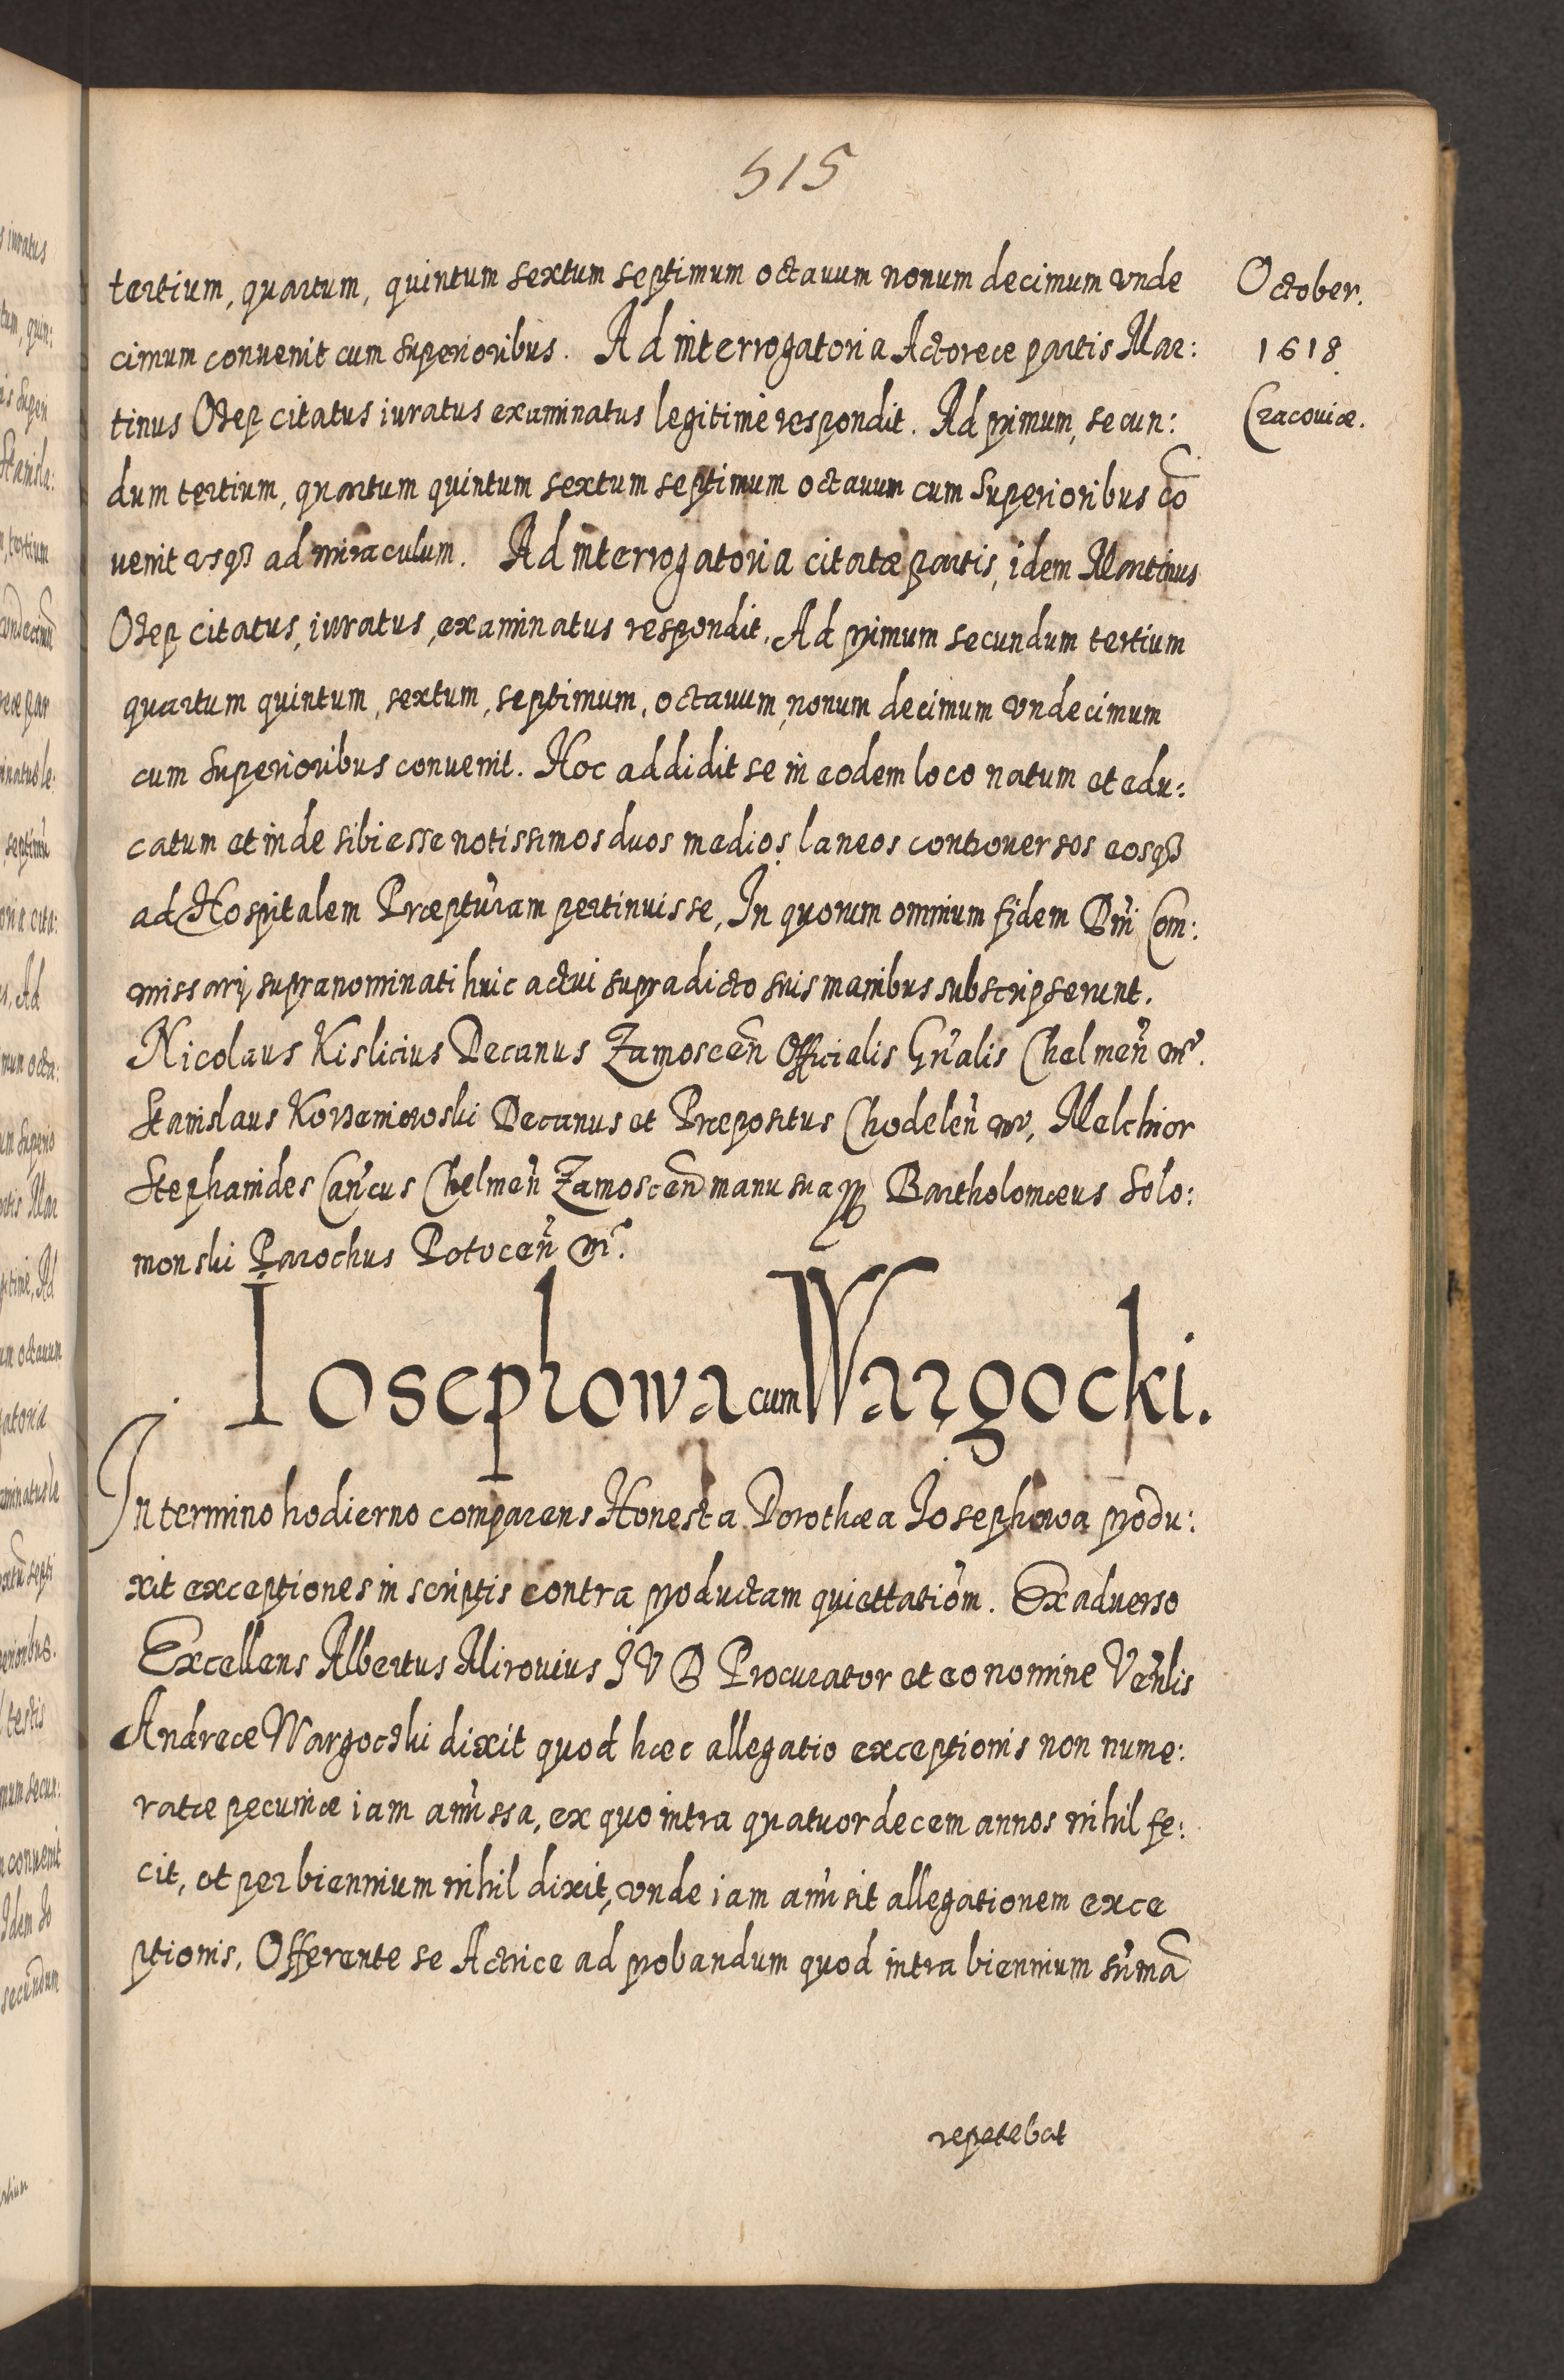 515
October.
1618.
Cracouiæ.
tertium, quartum, quintum sextum septimum octauum nonum decimum vnde
cimum conuenit cum superioribus. Ad interrogatoria Actoreæ partis Mar:
tinus Otep citatus iuratus examinatus legitimè respondit. Ad primum, secun:
dum tertium, quartum quintum sextum septimum octauum cum superioribus cō
uenit vsqȝ ad miraculum. Ad interrogatoria citatæ partis, idem Martinus
Otep citatus, iuratus, examinatus respondit, Ad primum secundum tertium
quartum quintum, sextum, septimum, octauum, nonum decimum vndecimum
cum superioribus conuenit. Hoc addidit se in eodem loco natum et edu:
catum et inde sibi esse notissimos duos medios laneos controuersos eosqȝ
ad Hospitalem Præptúram pertinuisse, In quorum omnium fidem Dni Com:
missarij supranominati huic actui supradicto suis manibus subscripserunt.
Nicolaus Kislicius Decanus Zamoscen̄ Officialis Gn̄alis Chelmen̄ mp.
Stanislaus Decanus et Præpositus Chodelen̄ mp, Melchior
Stephanides Can̄cus Chelmen̄ Zamoscen̄ manu sua pp Bartholomæus Solo:
monski Parochus Potocen̄ mp.
Iosephowa cum Wargocki.
In termino hodierno comparens Honesta Dorothæa Josephowa produ:
xit exceptiones in scriptis contra productam quiettatiōm. Ex aduerso
Excellens Albertus Mirouius J V D Procurator et eo nomine Venlis
Andreæ Wargocki dixit quod hæc allegatio exceptionis non nume:
ratæ pecuniæ iam amissa, ex quo intra quatuordecem annos nihil fe:
cit, et per biennium nihil dixit, vnde iam amisit allegationem exce
ptionis, Offerente se Actrice ad probandum quod intra biennium sūmā
repetebat